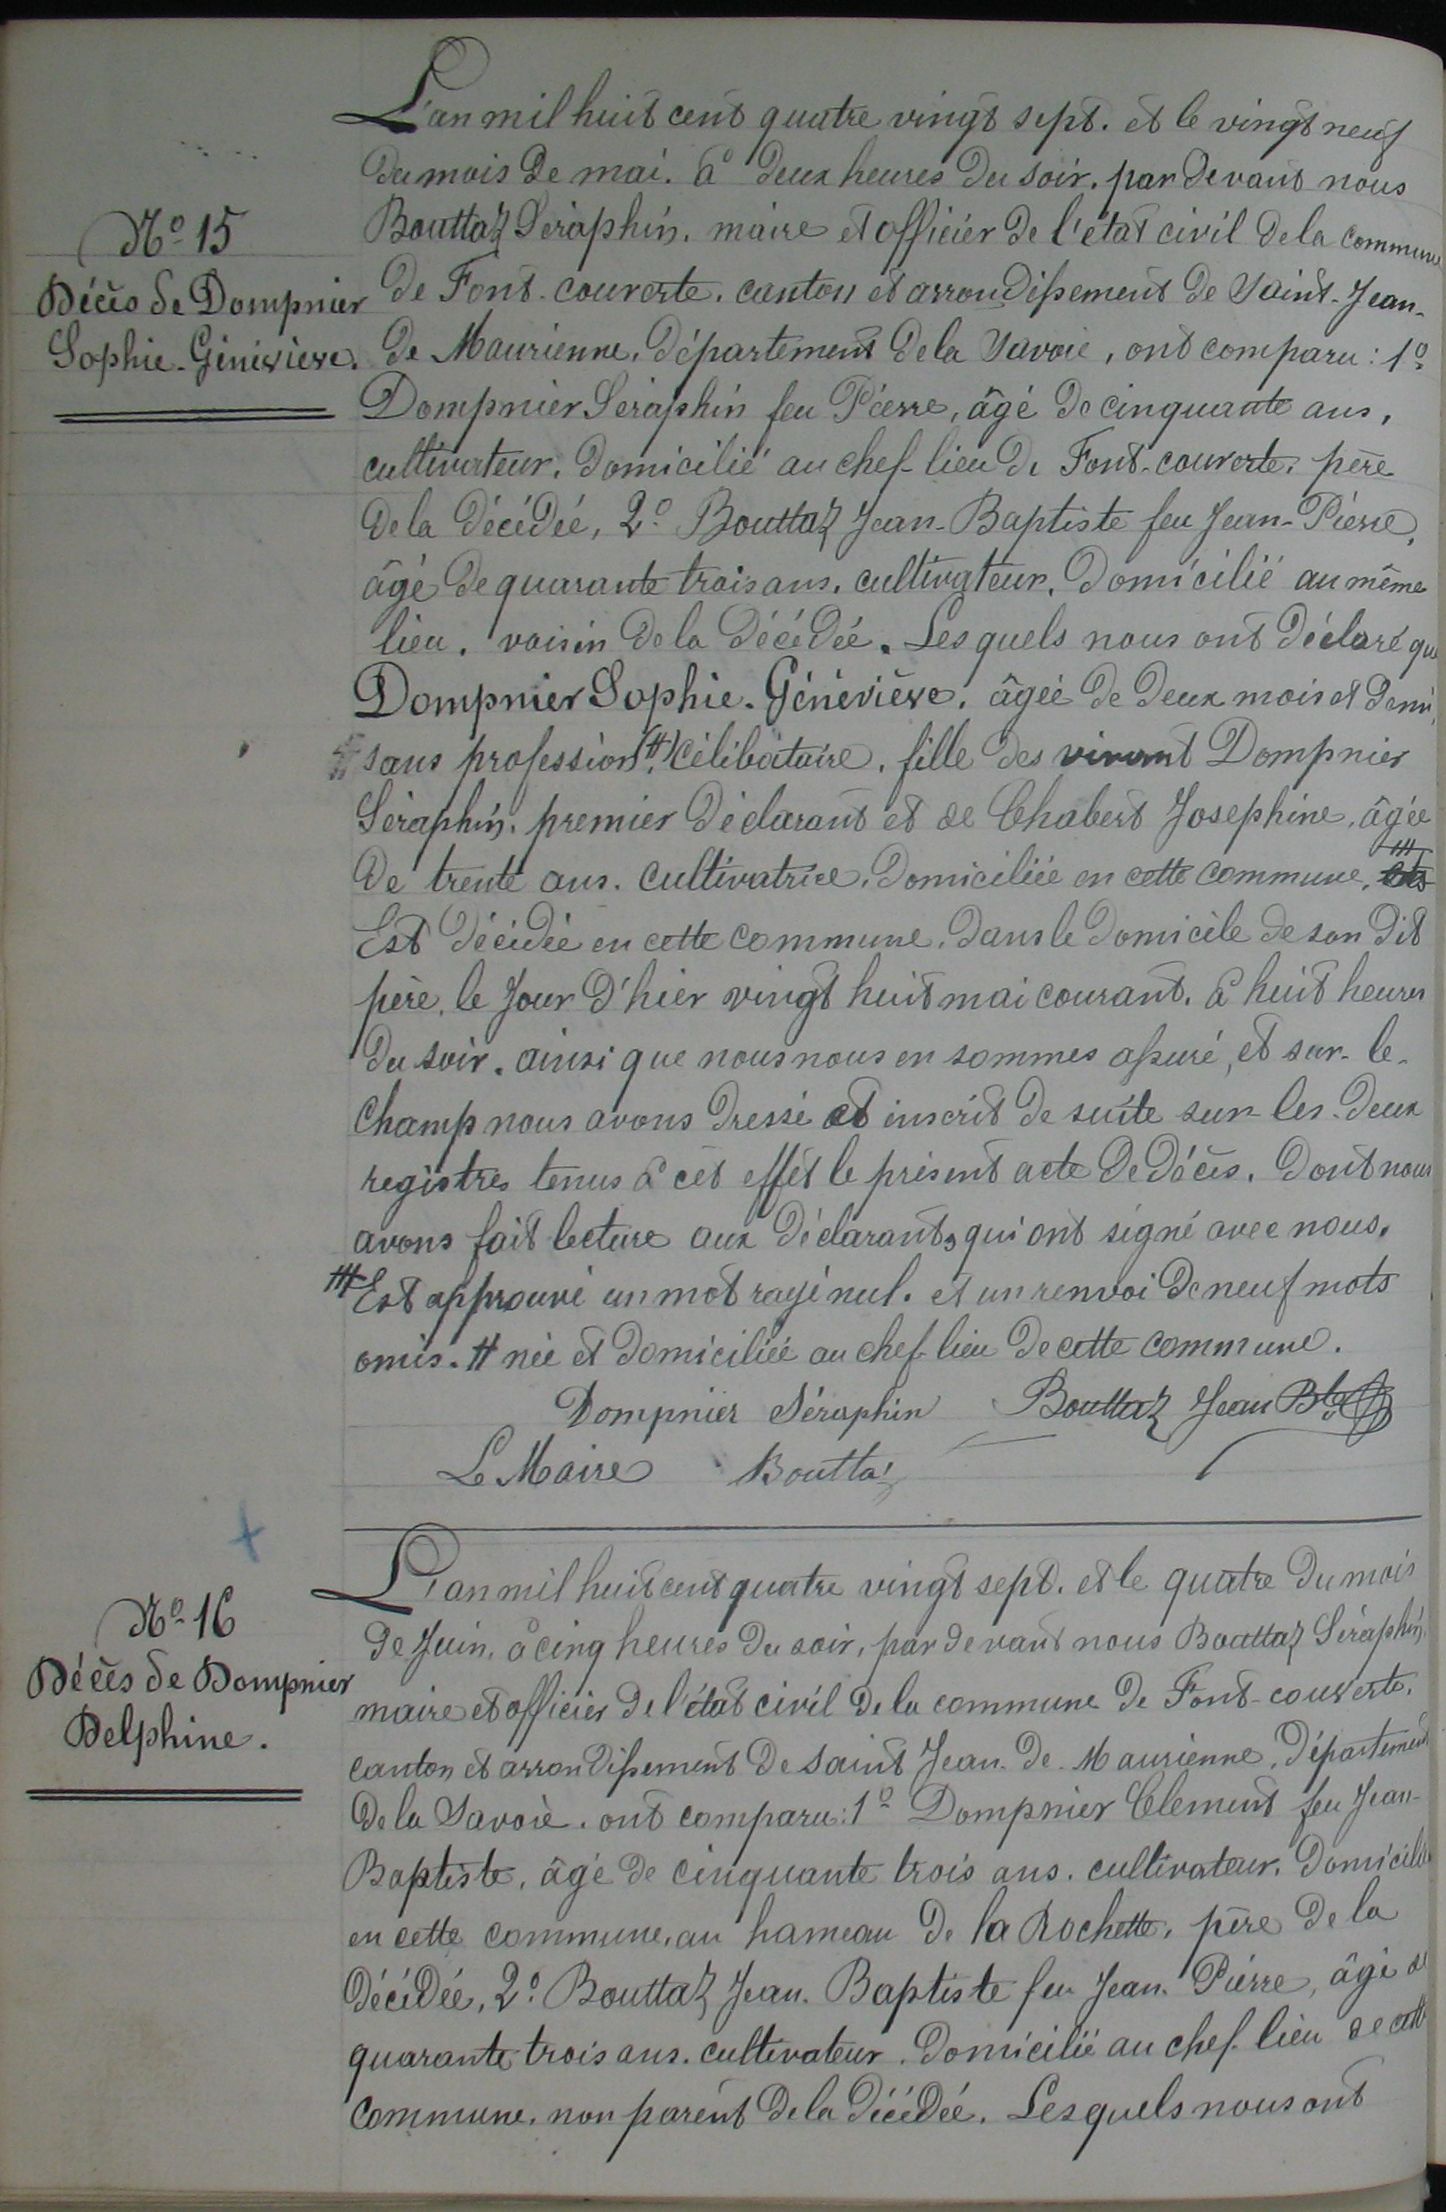 L'an mil huit cent quatre vingt sept. et le vingt neuf
du mois de mai. à deux heures du soir. par devant nous
Bouttaz Séraphin. maire et officier de l'état civil de la commune
de Font-couverte. canton et arrondissement de Saint-Jean-
de Maurienne, département de la Savoie, ont comparu : 1º
Dompnier Séraphin feu Pierre, âgé de cinquante ans,
cultivateur. domicilié au chef-lieu de Font-couverte. père
de la décédée, 2º Bouttaz Jean-Baptiste feu Jean-Pierre,
âgé de quarante trois ans. cultivateur. domicilié au même
lieu. voisin de la décédée. Lesquels nous ont déclaré que
Dompnier Sophie-Géneviève. âgée de deux mois et demi,
sans profession (#) célibataire. fille des vivant Dompnier
Séraphin. premier déclarant et de Chabert Josephine, âgée
de trente ans. cultivatrice. domiciliée en cette commune. ###
Est décédée en cette commune. dans le domicile de son dit
père. le jour d'hier vingt huit mai courant. à huit heures
du soir. ainsi que nous nous en sommes assuré, et sur-le-
champ nous avons dressé et inscrit de suite sur les deux
registres tenus à cet effet le présent acte de décès. dont nous
avons fait lecture aux déclarants qui ont signé avec nous.
### Est approuvé un mot rayé nul. et un renvoi de neuf mots
omis. # née et domiciliée au chef-lieu de cette commune.
Dompnier Séraphin Bouttaz Jean Bte
Le Maire Bouttaz
Nº 15
Décès de Dompnier
Sophie-Géniviève.
L'an mil huit cent quatre vingt sept. et le quatre du mois
de Juin. à cinq heures du soir, par devant nous Bouttaz Séraphin,
maire et officier de l'état civil de la commune de Font-couverte.
canton et arrondissement de Saint Jean-de-Maurienne, département
de la Savoie. ont comparu : 1º Dompnier Clement feu Jean-
Baptiste, âgé de cinquante trois ans. cultivateur. domicilié
en cette commune. au hameau de la Rochette, père de la
décédée, 2º Bouttaz Jean-Baptiste feu Jean-Pierre, âgé de
quarante trois ans. cultivateur. domicilié au chef-lieu de cette
commune. non parent de la décédée. Lesquels nous ont
Nº 16
Décès de Dompnier
Delphine.